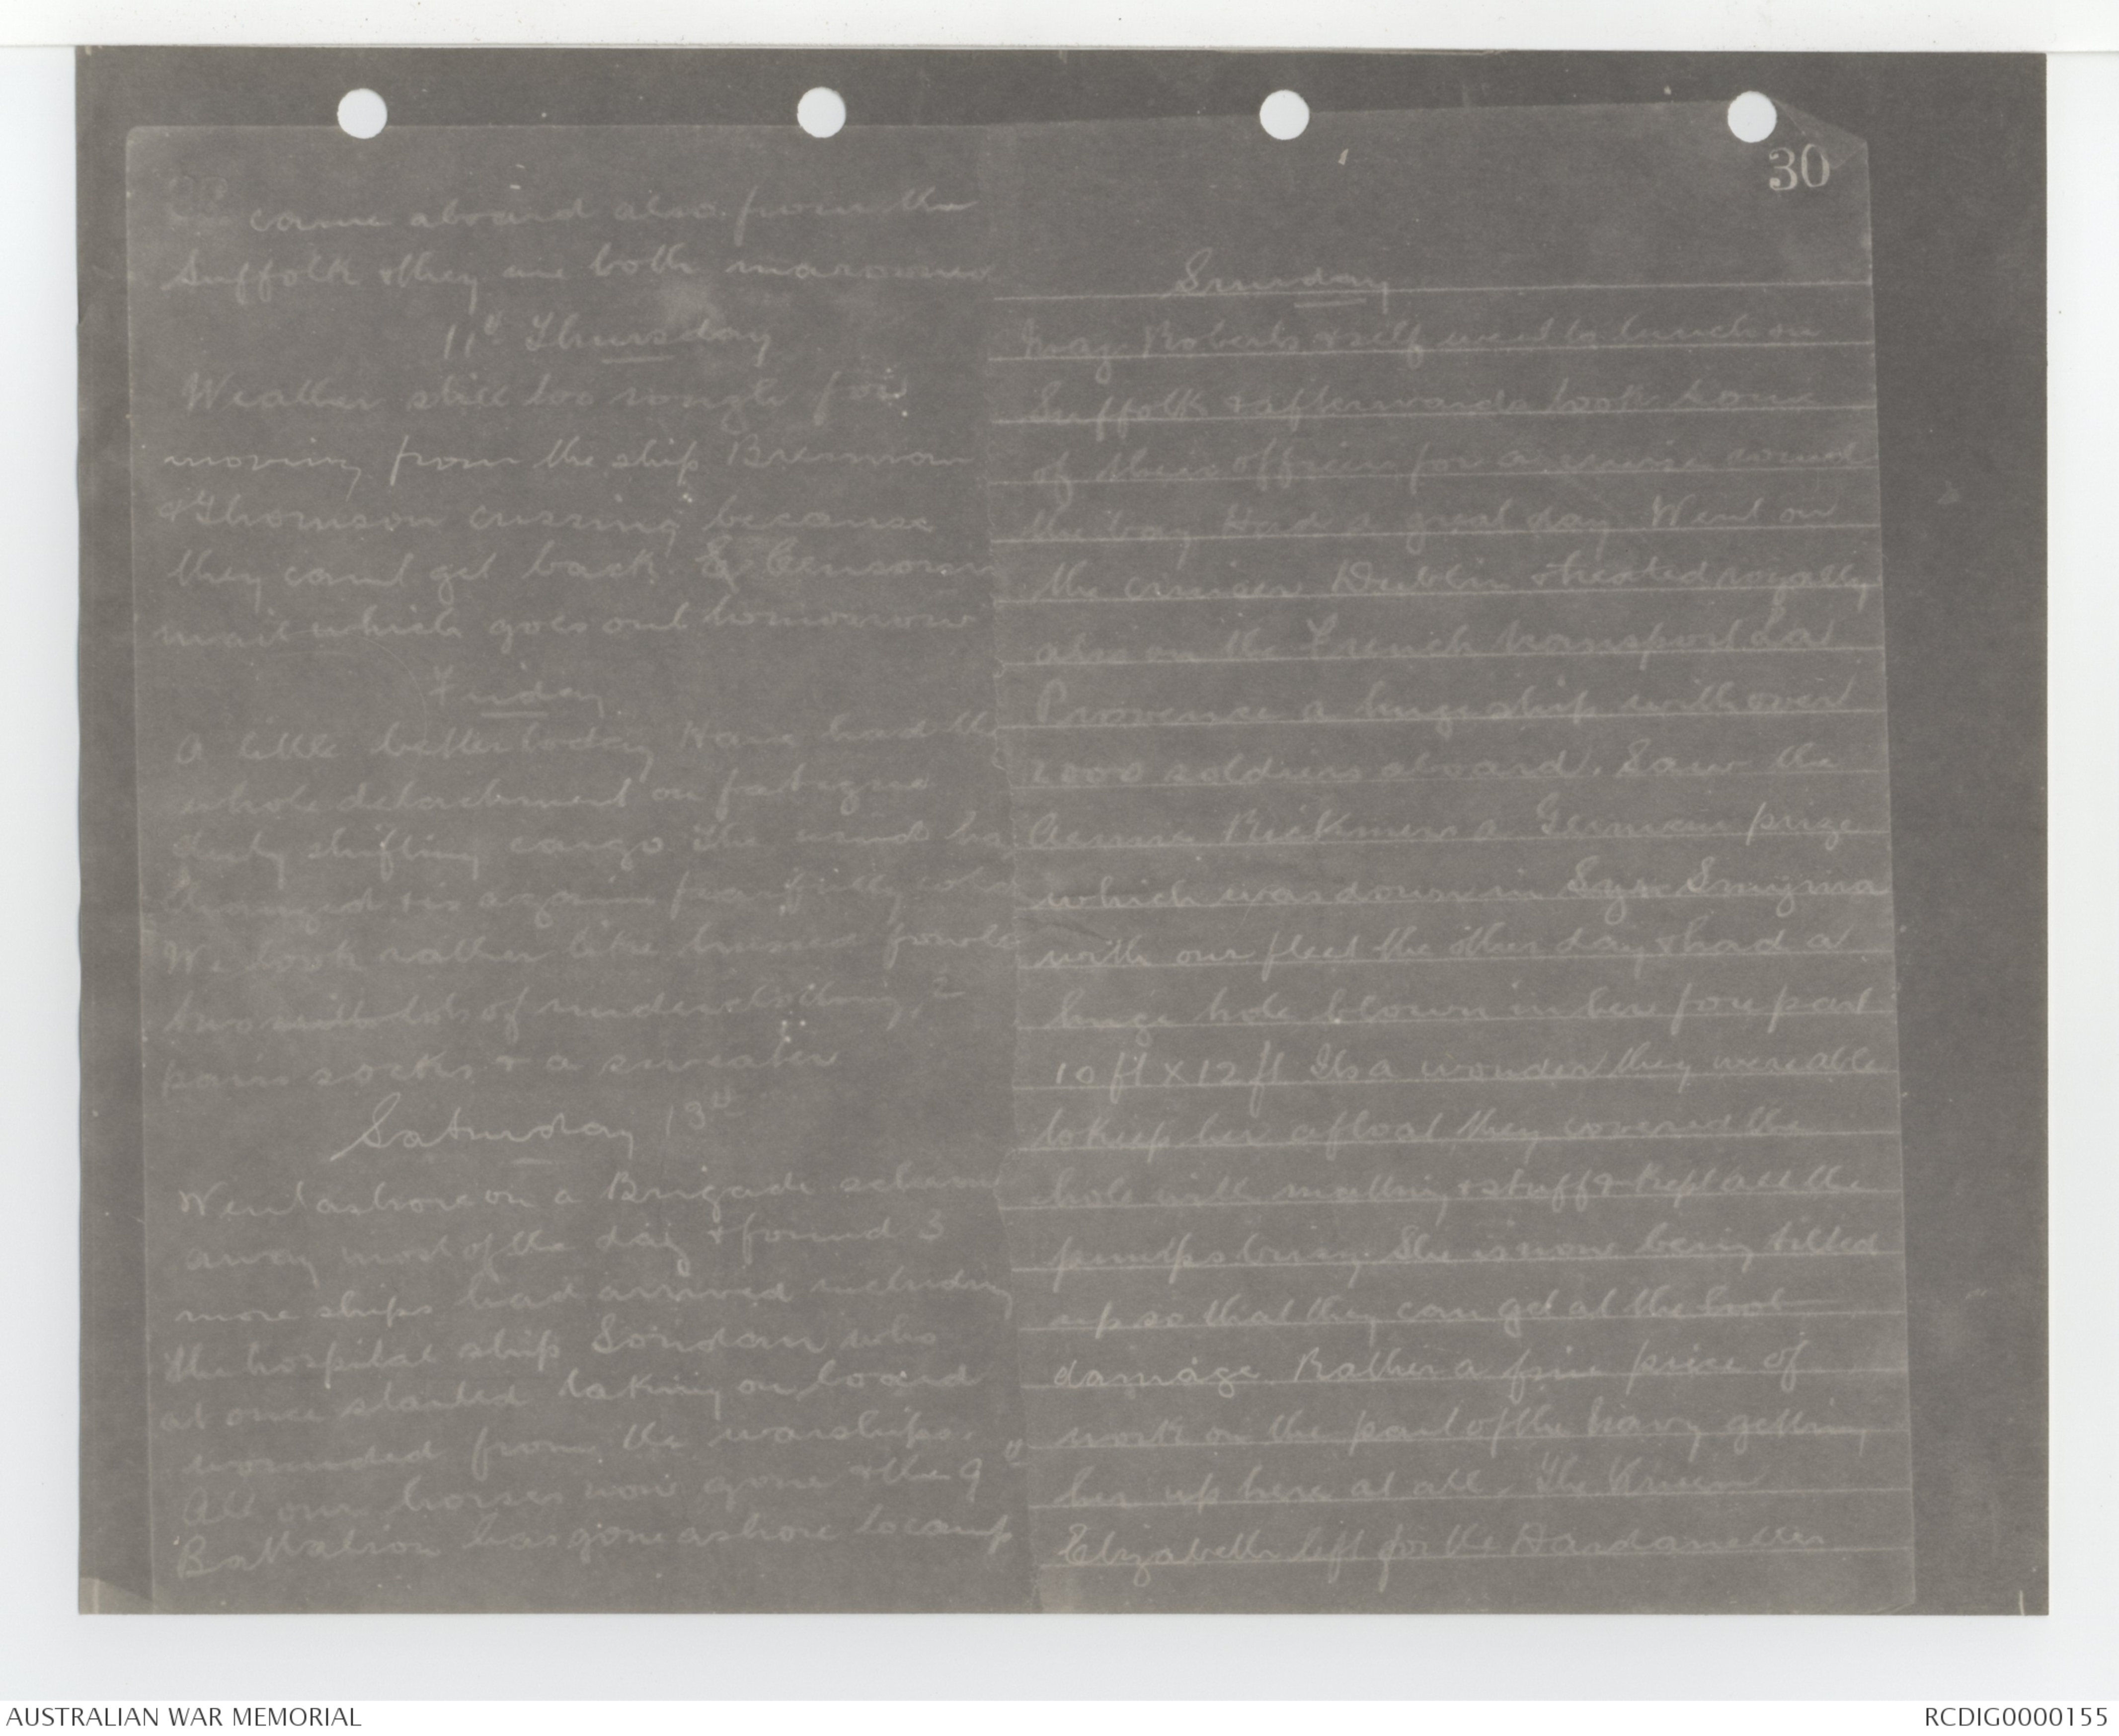 came aboard also from the
Suffolk & they are both marooned
11th Thursday
Weather still too rough for
moving from the ship Brennan
& Thomson cursing because
they cant get back. Censoring
mail which goes out tomorrow
Friday
A little better today Have had the
whole detachment on fatigue
duty shifting cargo The wind has
changed & is again frightfully cold
We look rather like trussed fowls
two suits of underclothing, 2
pairs socks & a sweater
Saturday 13th
Went ashore on a Brigade scheme
away most of the day & found 3
more ships had arrived including
the hospital ship Soudan who
at once started taking on board
wounded from the warships.
All our horses now gone & the 9th
Battalion has gone ashore to camp
30
Sunday
May Roberts & self went to lunch on
Suffolk & afterwards took some
of their officers for a cruise round
the bay Had a great day Went on
the cruiser Dublin & treated royally
also on the French transport La
Provence a huge ship with over
2000 soldiers aboard. Saw the
Rickmers a German prize
which was down in Smyrna
with our fleet the other day & had a
huge hole blown in her fore part
10 ft X 12 ft Its a wonder they were able
to keep her afloat they covered the
hole with matting & stuff & kept all the
pumps busy. She is now being tilted
up so that they can get at the
damage. Rather a fine piece of
work on the part of the Navy getting
her up here at all. The Queen
Elizabeth left for the Dardanelles
AUSTRALIAN WAR MEMORIAL
RCDIG0000155